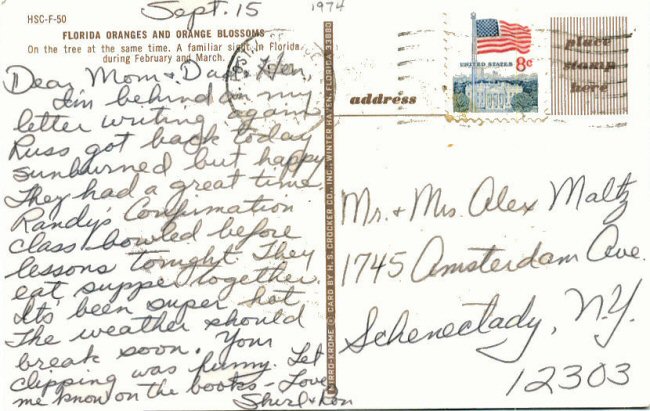 Sept. 15
1974
HSC-F-50
FLORIDA ORANGES AND ORANGE BLOSSOMS
On the tree at the same time. A familiar sight in Florida
during February and March.
Dear Mom + Dad, Hen,
I'm behind on my
letter writing again
Russ got back today
sunburned but happy
They had a great time.
Randy's Confirmation
class bowled before
lessons tonight They
eat supper together.
Its been super hot
The weather should
break soon. Your
clipping was funny. Let
me know on the books - Love
Shirl + Ron
MIRRO-KROME ® CARD BY H. S. CROCKER CO., INC., WINTER HAVEN, FLORIDA 33880
UNITED STATES 8c
place
stamp
here
address
Mr. + Mrs. Alex Maltz
1745 Amsterdam Ave.
Schenectady, N.Y.
12303